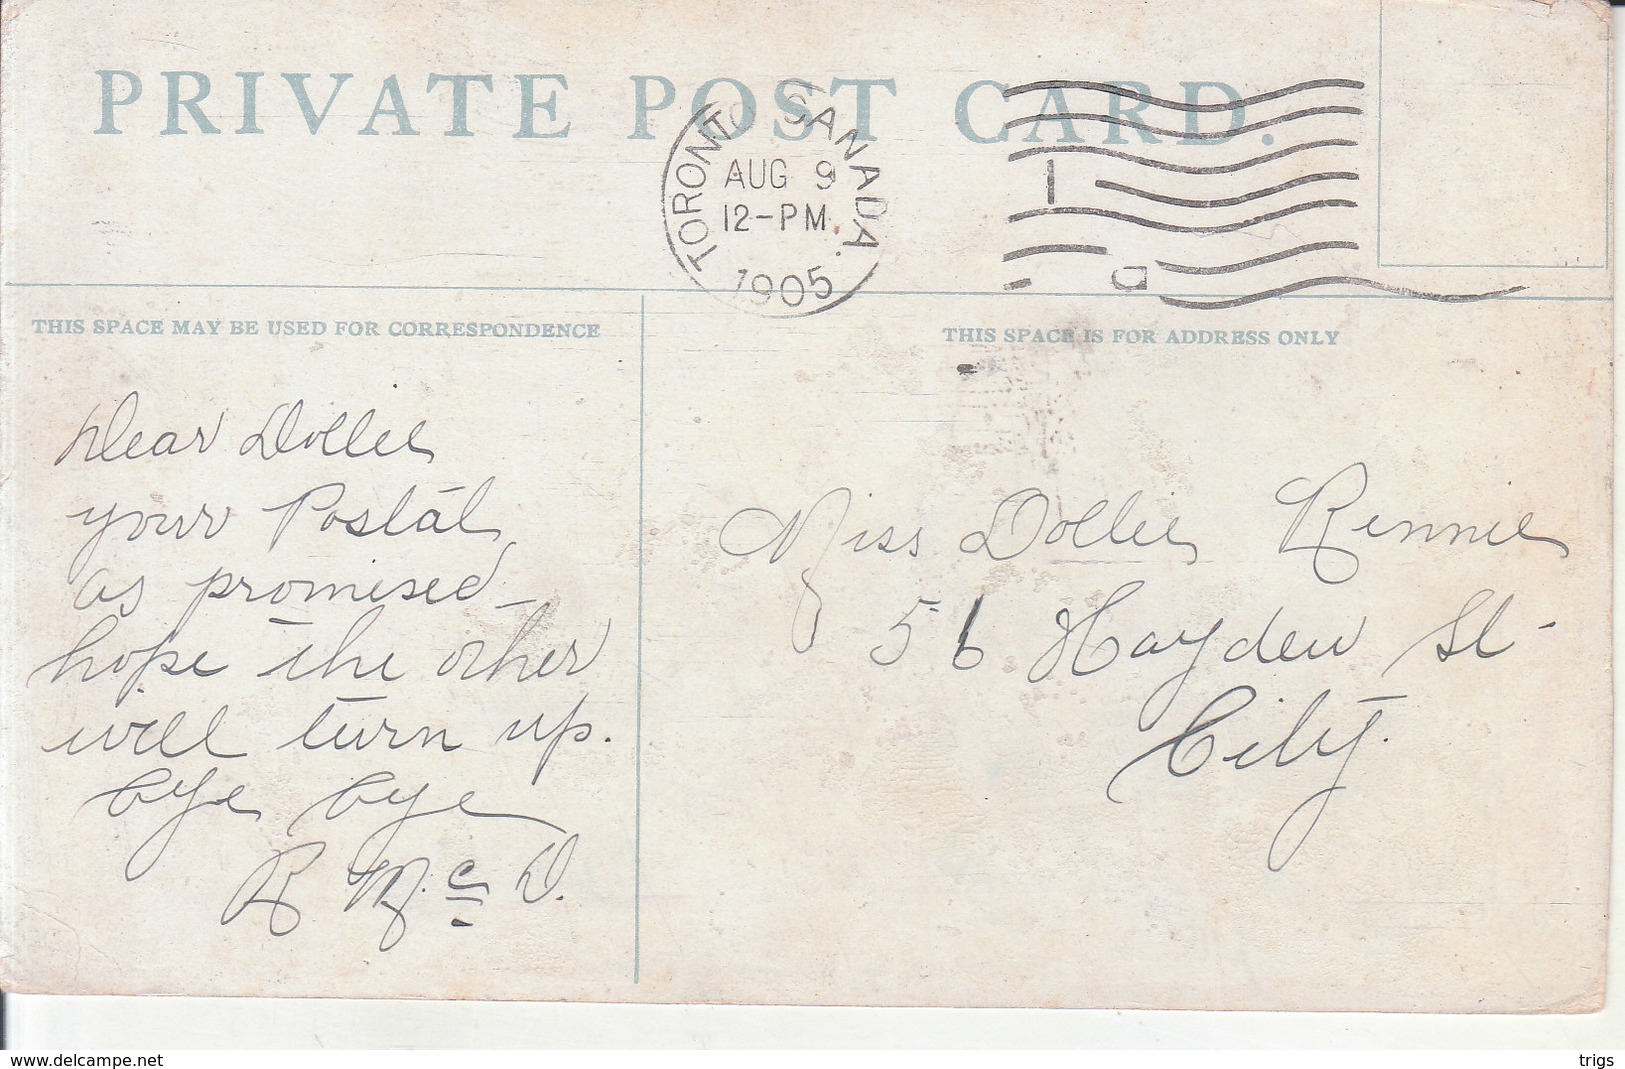 PRIVATE POST CARD.
TORONTO CANADA.
AUG 9
12-PM
1905
THIS SPACE MAY BE USED FOR CORRESPONDENCE
THIS SPACE IS FOR ADDRESS ONLY
Dear Dollie
your Postal
as promised -
hope the other
will turn up.
bye bye
R Mc D.
Miss Dollie Rennie
56 Hayden St -
City.
www.delcampe.net
trigs